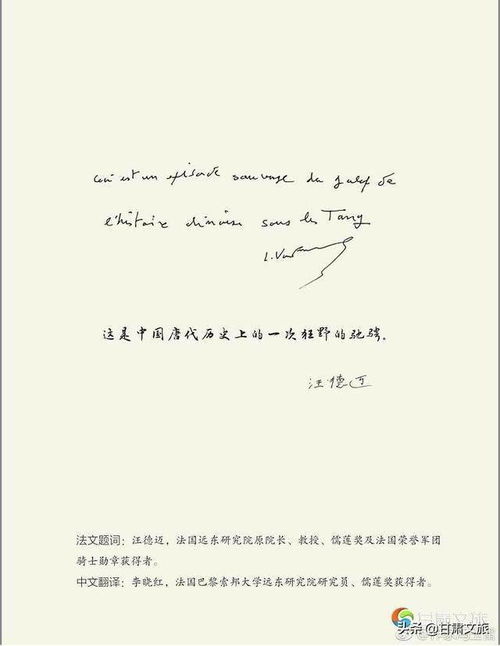 est un épisode sauvage du galop de
l'histoire chinoise sous les Tang
这是中国唐代历史上的一次狂野的驰骋.
汪德迈
法文题词：汪德迈，法国远东研究院原院长、教授、儒莲奖及法国荣誉军团
骑士勋章获得者。
中文翻译：李晓红，法国巴黎索邦大学远东研究院研究员、儒莲奖获得者。
甘肃文旅
头条@甘肃文旅